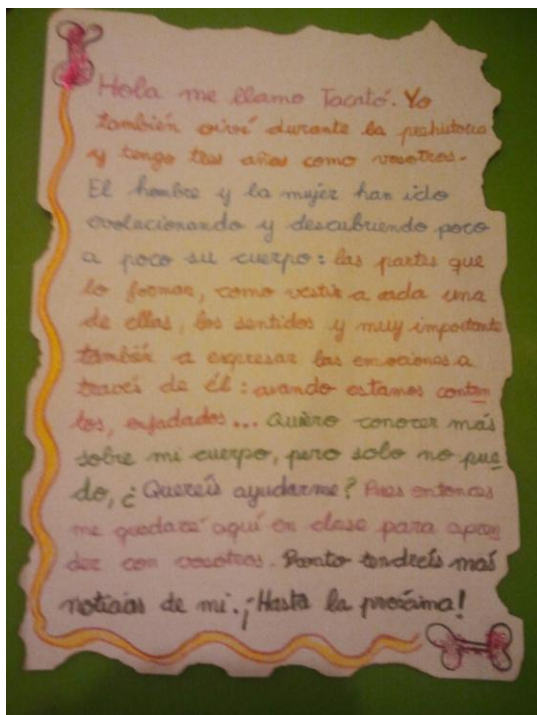 Hola me llamo Tacató. Yo
también viví durante la prehistoria
y tengo tres años como vosotros.
El hombre y la mujer han ido
evolucionando y descubriendo poco
a poco su cuerpo: las partes que
lo forman, como vestir a cada una
de ellas, los sentidos y muy importante
también a expresar las emociones a
través de él: cuando estamos conten
tos, enfadados... Quiero conocer más
sobre mi cuerpo, pero solo no pue
do, ¿Queréis ayudarme? Pues entonces
me quedaré aquí en clase para apren
der con vosotros. Pronto tendréis más
noticias de mi. ¡Hasta la próxima!